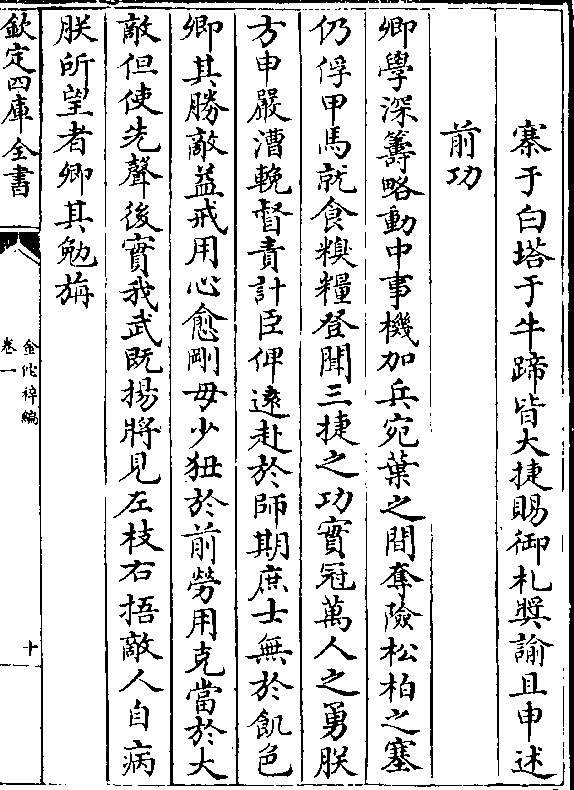 寨于白塔于牛蹄皆大捷賜御札奬諭且申述
前功
卿學深籌略動中事機加兵宛葉之間奪險松柏之塞
仍俘甲馬就食糗糧登聞三捷之功實冠萬人之勇朕
方申嚴漕輓督責計臣俾遠赴於師期庶士無於飢色
卿其勝敵益戒用心愈剛毋少狃於前勞用克當於大
敵但使先聲後實我武既揚將見左枝右捂敵人自病
朕所望者卿其勉旃
欽定四庫全書
金佗稡編
卷一
十